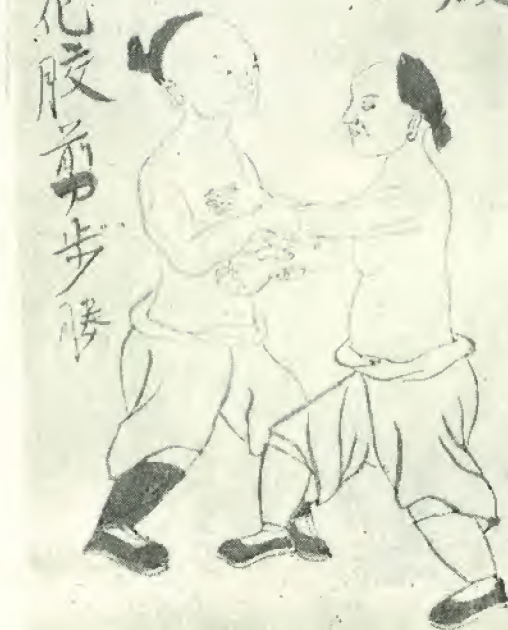 化胶剪步勝